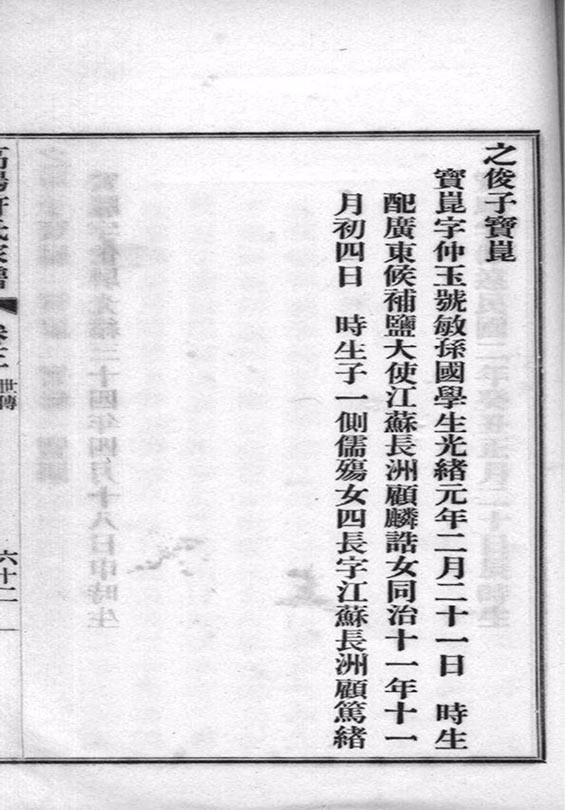 之俊子寶崑
寶崑字仲玉號敏孫國學生光緒元年二月二十一日　時生
配廣東候補鹽大使江蘇長洲顧麟誥女同治十一年十一
月初四日　時生子一側儒殤女四長字江蘇長洲顧篤緒
高陽許氏家譜　卷三　世傳　六十二